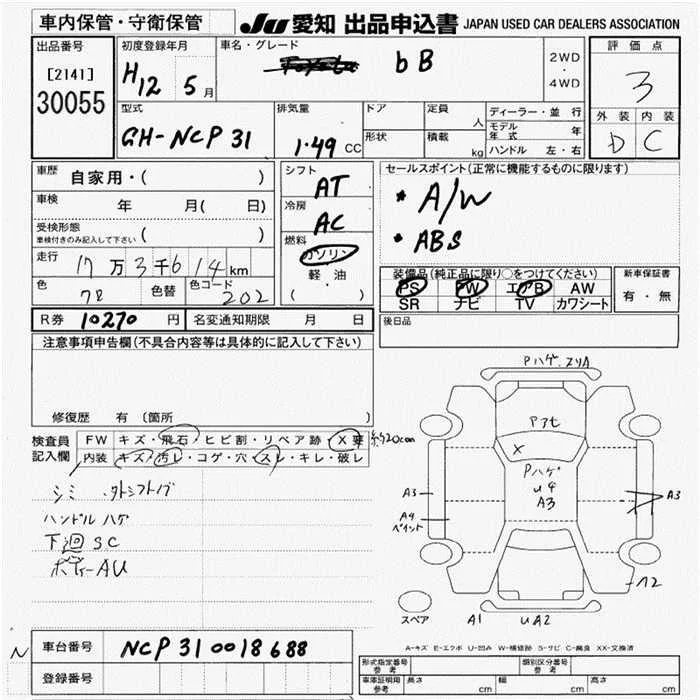 車内保管・守衛保管 JU 愛知 出品申込書 JAPAN USED CAR DEALERS ASSOCIATION
出品番号 初度登録年月 車名・グレード 評価点
[2141] H12 5月 bB 2WD・4WD 3
30055 型式 排気量 ドア 定員 人 ディーラー・並行 外装 内装
GH-NCP31 1.49 CC 形状 積載 kg モデル年式 年 D C
ハンドル 左・右
車歴 自家用・( ) シフト AT セールスポイント(正常に機能するものに限ります)
車検 年 月( 日) 冷房 AC * A/W
受検形態 車検付きのみ記入して下さい ( ) * ABS
走行 17万3千614km 燃料 ガソリン 軽油 ( ・ ) 装備品(純正品に限り○をつけてください) 新車保証書
色 78 色替 色コード 202 PS PW エアB AW 有・無
SR ナビ TV カワシート
R券 10270円 名変通知期限 月 日 後日品
注意事項申告欄(不具合内容等は具体的に記入して下さい)
修復歴 有 〔箇所 〕
検査員記入欄 FW キズ・飛石・ヒビ割・リペア跡・X要 約20cm
内装 キズ・汚レ・コゲ・穴・スレ・キレ・破レ
シミ
ハンドルハゲ
下廻SC
ボディーAU
Pハゲ
X
Pハゲ
U4
A3
A3
A4
ペイント
A3
A2
スペア A1 UA2
A-キズ E-エクボ U-凹み W-補修跡 S-サビ C-腐食 XX-交換済
車台番号 NCP31 0018688
登録番号
形式指定番号 参考 類別区分番号 参考
車庫証明用 参考 長さ cm 幅 cm 高さ cm